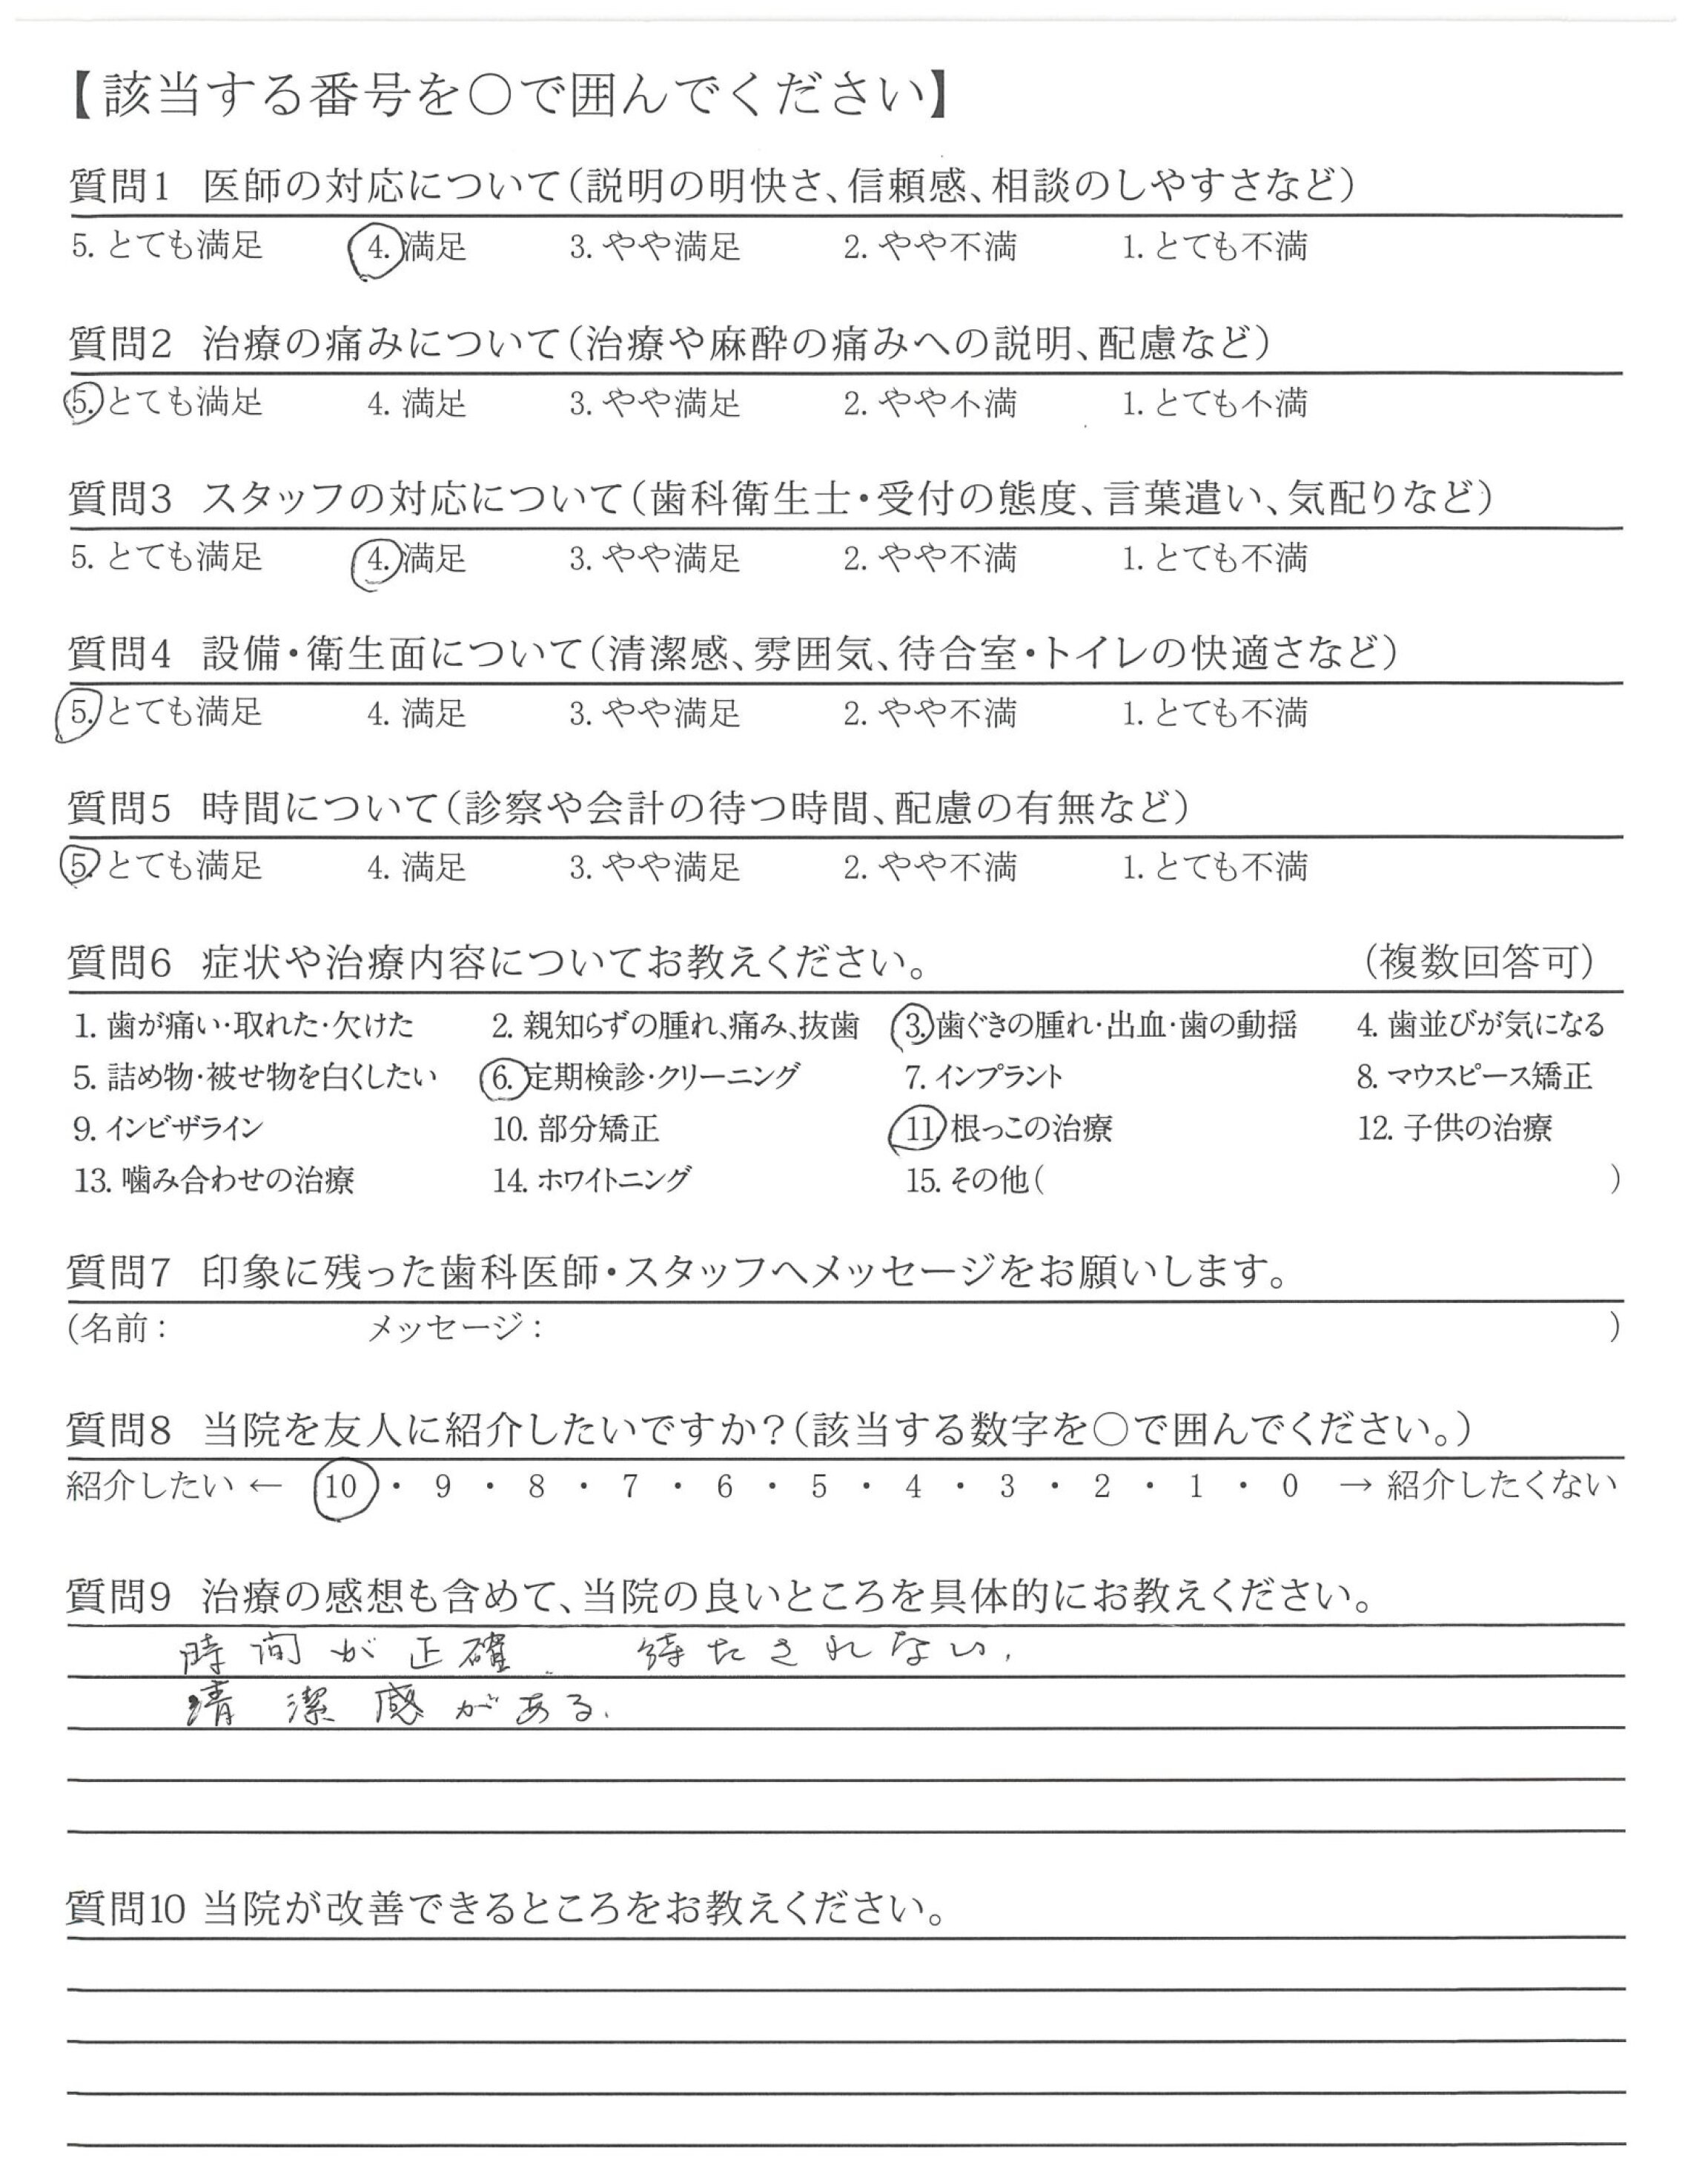 【該当する番号を〇で囲んでください】
質問1 医師の対応について(説明の明快さ、信頼感、相談のしやすさなど)
5. とても満足 4. 満足 3. やや満足 2. やや不満 1. とても不満
質問2 治療の痛みについて(治療や麻酔の痛みへの説明、配慮など)
5. とても満足 4. 満足 3. やや満足 2. やや不満 1. とても不満
質問3 スタッフの対応について(歯科衛生士・受付の態度、言葉遣い、気配りなど)
5. とても満足 4. 満足 3. やや満足 2. やや不満 1. とても不満
質問4 設備・衛生面について(清潔感、雰囲気、待合室・トイレの快適さなど)
5. とても満足 4. 満足 3. やや満足 2. やや不満 1. とても不満
質問5 時間について(診察や会計の待つ時間、配慮の有無など)
5. とても満足 4. 満足 3. やや満足 2. やや不満 1. とても不満
質問6 症状や治療内容についてお教えください。 (複数回答可)
1. 歯が痛い・取れた・欠けた 2. 親知らずの腫れ、痛み、抜歯 3. 歯ぐきの腫れ・出血・歯の動揺 4. 歯並びが気になる
5. 詰め物・被せ物を白くしたい 6. 定期検診・クリーニング 7. インプラント 8. マウスピース矯正
9. インビザライン 10. 部分矯正 11. 根っこの治療 12. 子供の治療
13. 噛み合わせの治療 14. ホワイトニング 15. その他( )
質問7 印象に残った歯科医師・スタッフへメッセージをお願いします。
(名前: メッセージ: )
質問8 当院を友人に紹介したいですか?(該当する数字を〇で囲んでください。)
紹介したい ← 10 ・ 9 ・ 8 ・ 7 ・ 6 ・ 5 ・ 4 ・ 3 ・ 2 ・ 1 ・ 0 → 紹介したくない
質問9 治療の感想も含めて、当院の良いところを具体的にお教えください。
時間が正確. 待たされない.
清潔感がある.
質問10 当院が改善できるところをお教えください。